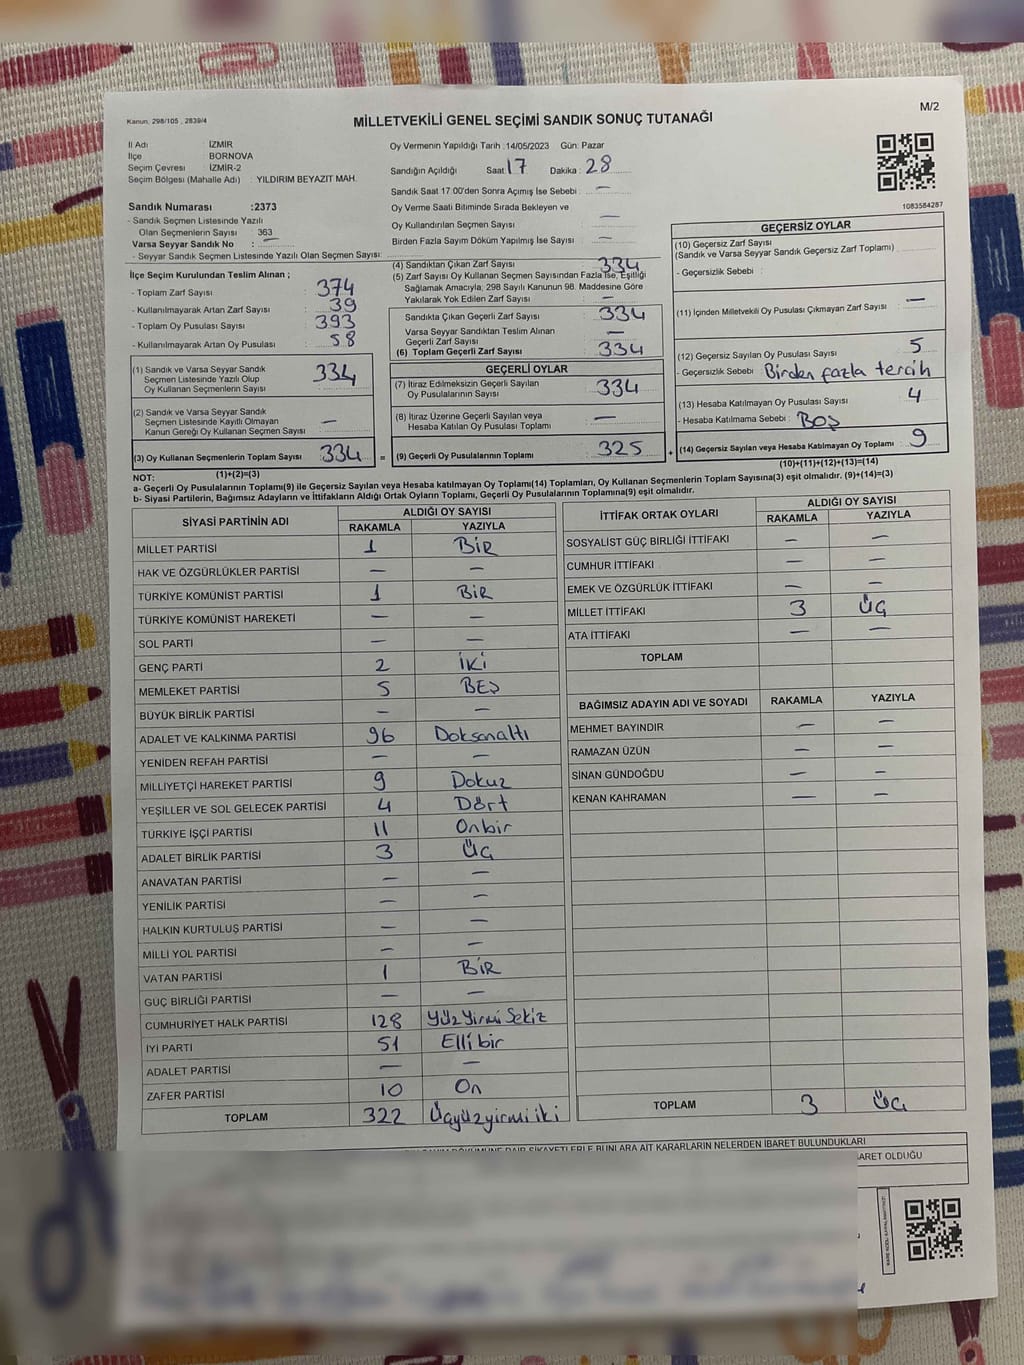 Kanun, 298/105 , 2839/4
M/2
MİLLETVEKİLİ GENEL SEÇİMİ SANDIK SONUÇ TUTANAĞI
İl Adı İZMİR
İlçe BORNOVA
Seçim Çevresi İZMİR-2
Seçim Bölgesi (Mahalle Adı) : YILDIRIM BEYAZIT MAH.
Oy Vermenin Yapıldığı Tarih :14/05/2023 Gün: Pazar
Sandığın Açıldığı Saat 17 Dakika : 28
Sandık Saat 17:00'den Sonra Açımış İse Sebebi : —
Oy Verme Saati Bitiminde Sırada Bekleyen ve
Oy Kullandırılan Seçmen Sayısı —
Birden Fazla Sayım Döküm Yapılmış İse Sayısı : —
1083584287
Sandık Numarası :2373
- Sandık Seçmen Listesinde Yazılı
Olan Seçmenlerin Sayısı : 363
Varsa Seyyar Sandık No : —
- Seyyar Sandık Seçmen Listesinde Yazılı Olan Seçmen Sayısı:
İlçe Seçim Kurulundan Teslim Alınan ;
- Toplam Zarf Sayısı : 374
- Kullanılmayarak Artan Zarf Sayısı : 39
- Toplam Oy Pusulası Sayısı : 393
- Kullanılmayarak Artan Oy Pusulası : 58
(1) Sandık ve Varsa Seyyar Sandık
Seçmen Listesinde Yazılı Olup
Oy Kullanan Seçmenlerin Sayısı 334
(2) Sandık ve Varsa Seyyar Sandık
Seçmen Listesinde Kayıtlı Olmayan
Kanun Gereği Oy Kullanan Seçmen Sayısı —
(3) Oy Kullanan Seçmenlerin Toplam Sayısı 334 =
(1)+(2)=(3)
(4) Sandıktan Çıkan Zarf Sayısı : 334
(5) Zarf Sayısı Oy Kullanan Seçmen Sayısından Fazla İse, Eşitliği
Sağlamak Amacıyla, 298 Sayılı Kanunun 98. Maddesine Göre
Yakılarak Yok Edilen Zarf Sayısı : —
Sandıkta Çıkan Geçerli Zarf Sayısı : 334
Varsa Seyyar Sandıktan Teslim Alınan
Geçerli Zarf Sayısı —
(6) Toplam Geçerli Zarf Sayısı 334
GEÇERLİ OYLAR
(7) İtiraz Edilmeksizin Geçerli Sayılan
Oy Pusulalarının Sayısı 334
(8) İtiraz Üzerine Geçerli Sayılan veya
Hesaba Katılan Oy Pusulası Toplamı —
(9) Geçerli Oy Pusulalarının Toplamı 325 +
GEÇERSİZ OYLAR
(10) Geçersiz Zarf Sayısı
(Sandık ve Varsa Seyyar Sandık Geçersiz Zarf Toplamı)
- Geçersizlik Sebebi :
(11) İçinden Milletvekili Oy Pusulası Çıkmayan Zarf Sayısı —
(12) Geçersiz Sayılan Oy Pusulası Sayısı 5
- Geçersizlik Sebebi Birden fazla tercih
(13) Hesaba Katılmayan Oy Pusulası Sayısı 4
- Hesaba Katılmama Sebebi : BOŞ
(14) Geçersiz Sayılan veya Hesaba Katılmayan Oy Toplamı 9
(10)+(11)+(12)+(13)=(14)
NOT:
a- Geçerli Oy Pusulalarının Toplamı(9) ile Geçersiz Sayılan veya Hesaba katılmayan Oy Toplamı(14) Toplamları, Oy Kullanan Seçmenlerin Toplam Sayısına(3) eşit olmalıdır. (9)+(14)=(3)
b- Siyasi Partilerin, Bağımsız Adayların ve İttifakların Aldığı Ortak Oyların Toplamı, Geçerli Oy Pusulalarının Toplamına(9) eşit olmalıdır.
SİYASİ PARTİNİN ADI ALDIĞI OY SAYISI
RAKAMLA YAZIYLA
MİLLET PARTİSİ 1 BİR
HAK VE ÖZGÜRLÜKLER PARTİSİ — —
TÜRKİYE KOMÜNİST PARTİSİ 1 BİR
TÜRKİYE KOMÜNİST HAREKETİ — —
SOL PARTİ — —
GENÇ PARTİ 2 İKİ
MEMLEKET PARTİSİ 5 BEŞ
BÜYÜK BİRLİK PARTİSİ — —
ADALET VE KALKINMA PARTİSİ 96 Doksanaltı
YENİDEN REFAH PARTİSİ — —
MİLLİYETÇİ HAREKET PARTİSİ 9 Dokuz
YEŞİLLER VE SOL GELECEK PARTİSİ 4 Dört
TÜRKİYE İŞÇİ PARTİSİ 11 Onbir
ADALET BİRLİK PARTİSİ 3 Üç
ANAVATAN PARTİSİ — —
YENİLİK PARTİSİ — —
HALKIN KURTULUŞ PARTİSİ — —
MİLLİ YOL PARTİSİ — —
VATAN PARTİSİ 1 BİR
GÜÇ BİRLİĞİ PARTİSİ — —
CUMHURİYET HALK PARTİSİ 128 Yüz Yirmi Sekiz
İYİ PARTİ 51 Ellibir
ADALET PARTİSİ — —
ZAFER PARTİSİ 10 On
TOPLAM 322 Üçyüzyirmiiki
İTTİFAK ORTAK OYLARI ALDIĞI OY SAYISI
RAKAMLA YAZIYLA
SOSYALİST GÜÇ BİRLİĞİ İTTİFAKI — —
CUMHUR İTTİFAKI — —
EMEK VE ÖZGÜRLÜK İTTİFAKI — —
MİLLET İTTİFAKI 3 ÜÇ
ATA İTTİFAKI — —
TOPLAM
BAĞIMSIZ ADAYIN ADI VE SOYADI RAKAMLA YAZIYLA
MEHMET BAYINDIR — —
RAMAZAN ÜZÜN — —
SİNAN GÜNDOĞDU — —
KENAN KAHRAMAN — —
TOPLAM 3 Üç
ŞİKAYETLERLE BUNLARA AİT KARARLARIN NELERDEN İBARET BULUNDUKLARI
OLDUĞU